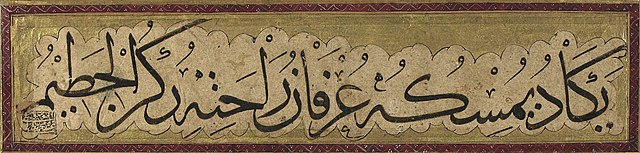 يكاد يمسكه عرفان راحته ركن الحطيم